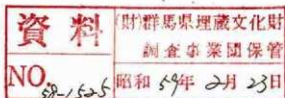 資料
(財)群馬県埋蔵文化財
調査事業団保管
NO. 58-1525
昭和 59年 2月 23日